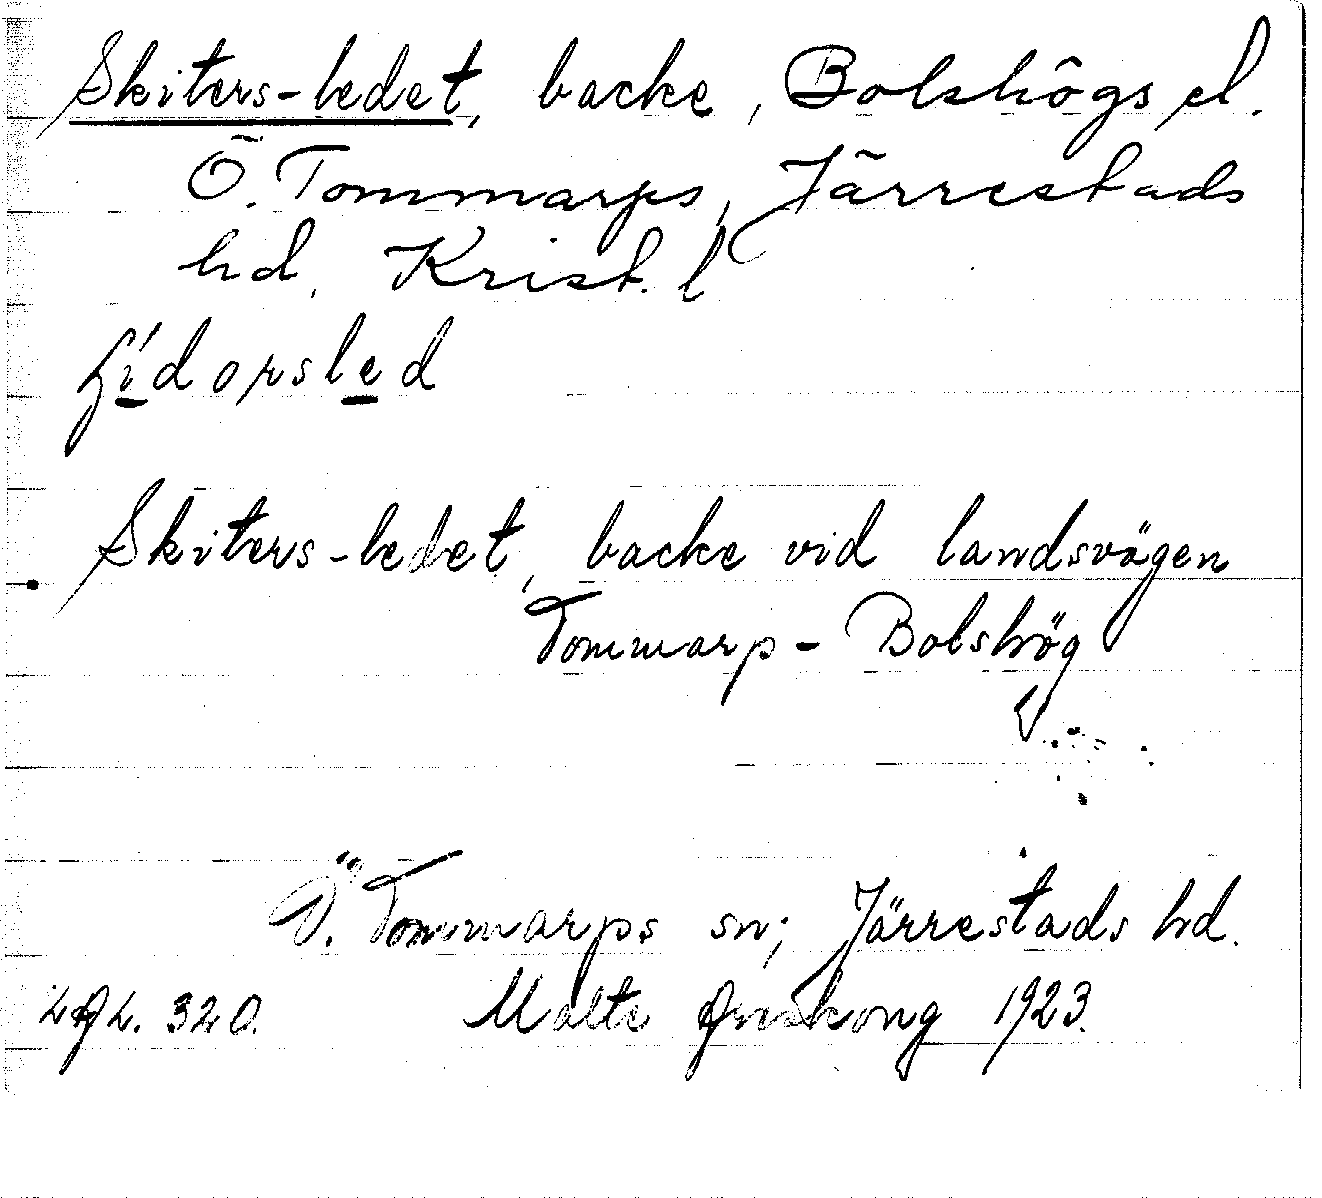 Skiters-ledet, backe, Bolshögs el.
Ö. Tommarps, Järrestads
hd, Krist. l
Skiters-ledet, backe vid landsvägen
Tommarp - Bolshög
Ö. Tommarps sn; Järrestads hd.
320. Malte 1923.